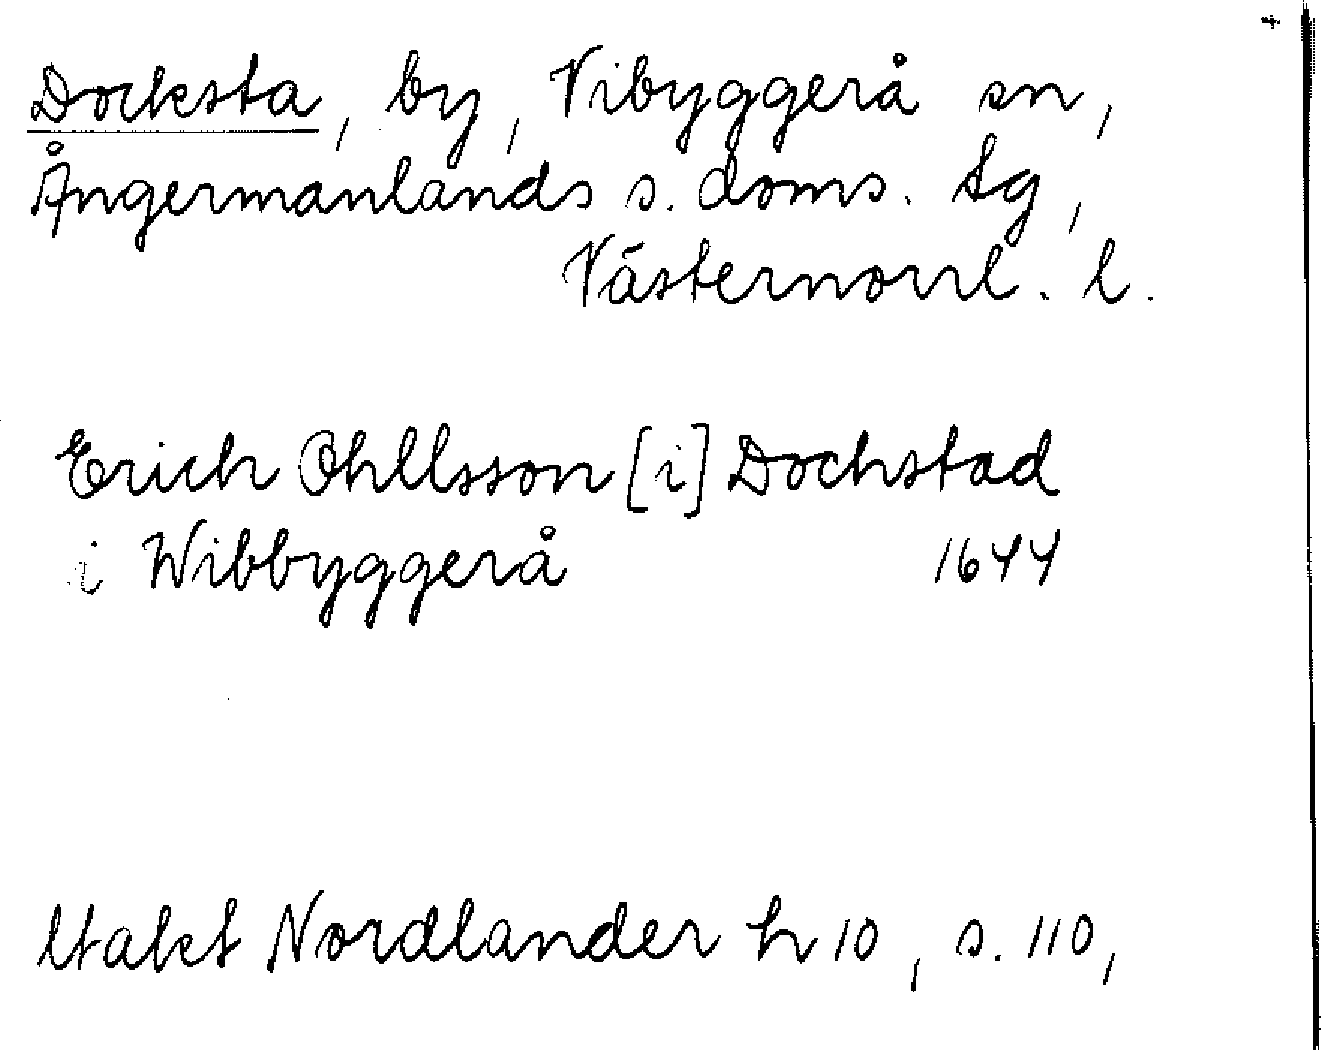 Docksta, by, Vibyggerå sn,
Ångermanlands s. doms. tg,
Västernorrl. l.
Erich Ohllsson [i] Dochstad
i Wibbyggerå 1644
Utakt Nordlander h 10, s. 110,